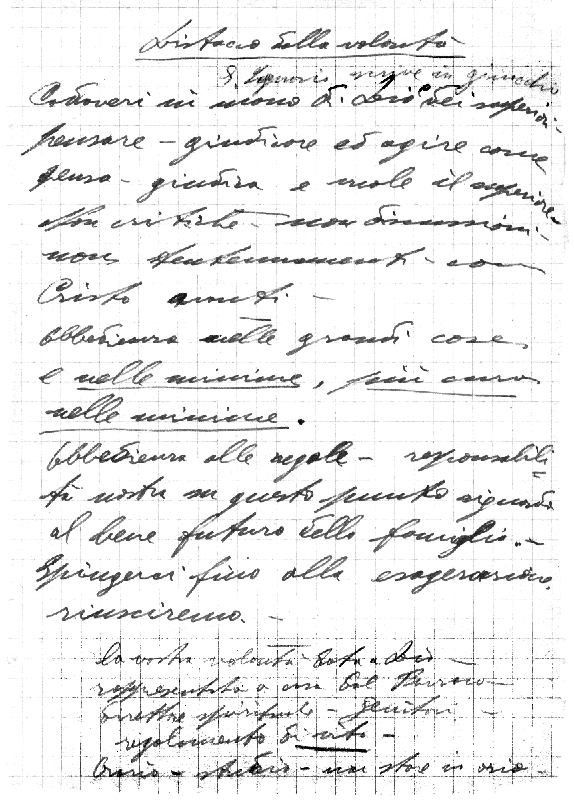 Distacco della volontà
S. Ignazio scrive in ginocchio
Cadaveri in mano di Dio dei superiori -
pensare - giudicare ed agire come
pensa - giudica e vuole il superiore -
Non critiche - non discussioni -
non tentennamenti - con
Cristo avanti -
Obbedienza nelle grandi cose,
e nelle minime, più cura
nelle minime.
Obbedienza alle regole - responsabili
tà nostra su questo punto riguardo
al bene futuro della famiglia. -
Spingerci fino alla esagerazione,
riusciremo. -
La vostra volontà data a Dio -
rappresentata a casa dal Parroco -
direttore spirituale - genitori -
regolamento di vita -
Orario - studio - non stare in ozio -